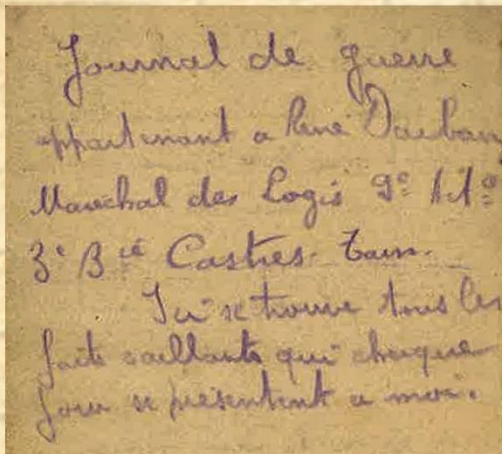 Journal de guerre
appartenant a René Dauban
Maréchal des Logis 9e
3e Bie Castres-Tarn.
Ici se trouve tous les
faits saillants qui chaque
jour se présentent a moi.